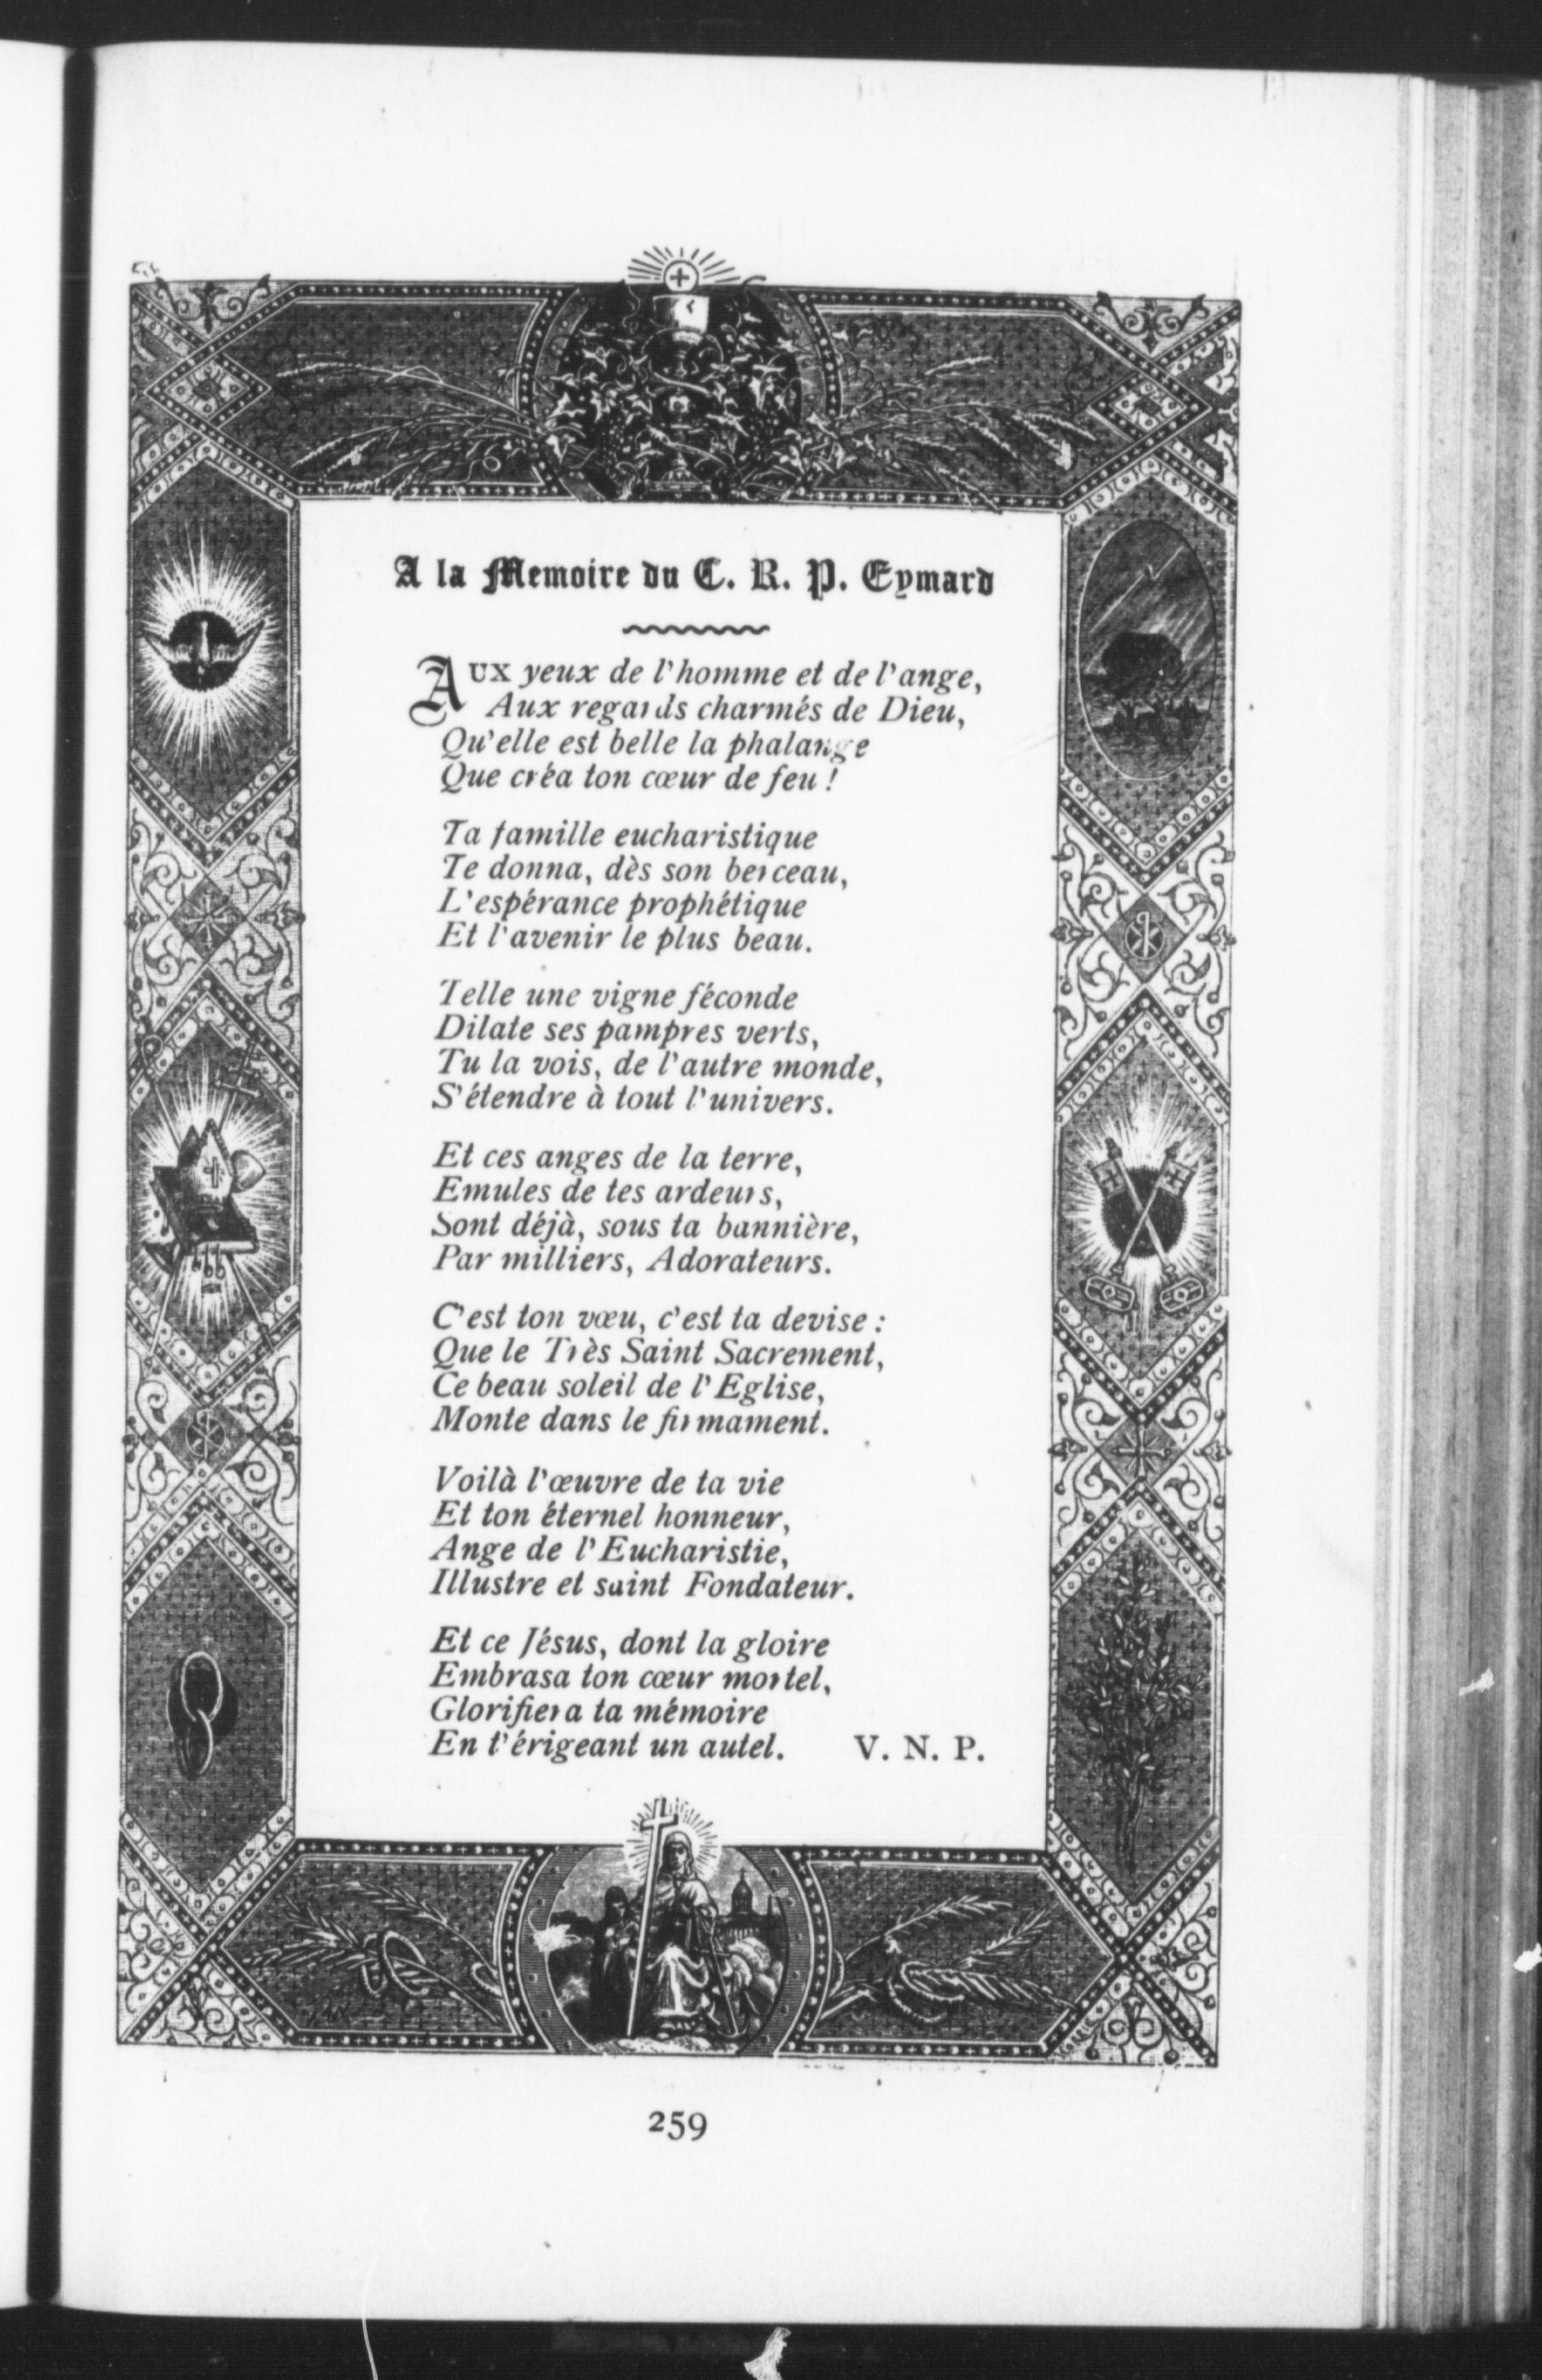 A la Memoire du T. R. P. Eymard
AUX yeux de l'homme et de l'ange,
Aux regards charmés de Dieu,
Qu'elle est belle la phalange
Que créa ton cœur de feu !
Ta famille eucharistique
Te donna, dès son berceau,
L'espérance prophétique
Et l'avenir le plus beau.
Telle une vigne féconde
Dilate ses pampres verts,
Tu la vois, de l'autre monde,
S'étendre à tout l'univers.
Et ces anges de la terre,
Emules de tes ardeurs,
Sont déjà, sous ta bannière,
Par milliers, Adorateurs.
C'est ton vœu, c'est ta devise :
Que le Très Saint Sacrement,
Ce beau soleil de l'Eglise,
Monte dans le firmament.
Voilà l'œuvre de ta vie
Et ton éternel honneur,
Ange de l'Eucharistie,
Illustre et saint Fondateur.
Et ce Jésus, dont la gloire
Embrasa ton cœur mortel,
Glorifiera ta mémoire
En t'érigeant un autel. V. N. P.
259